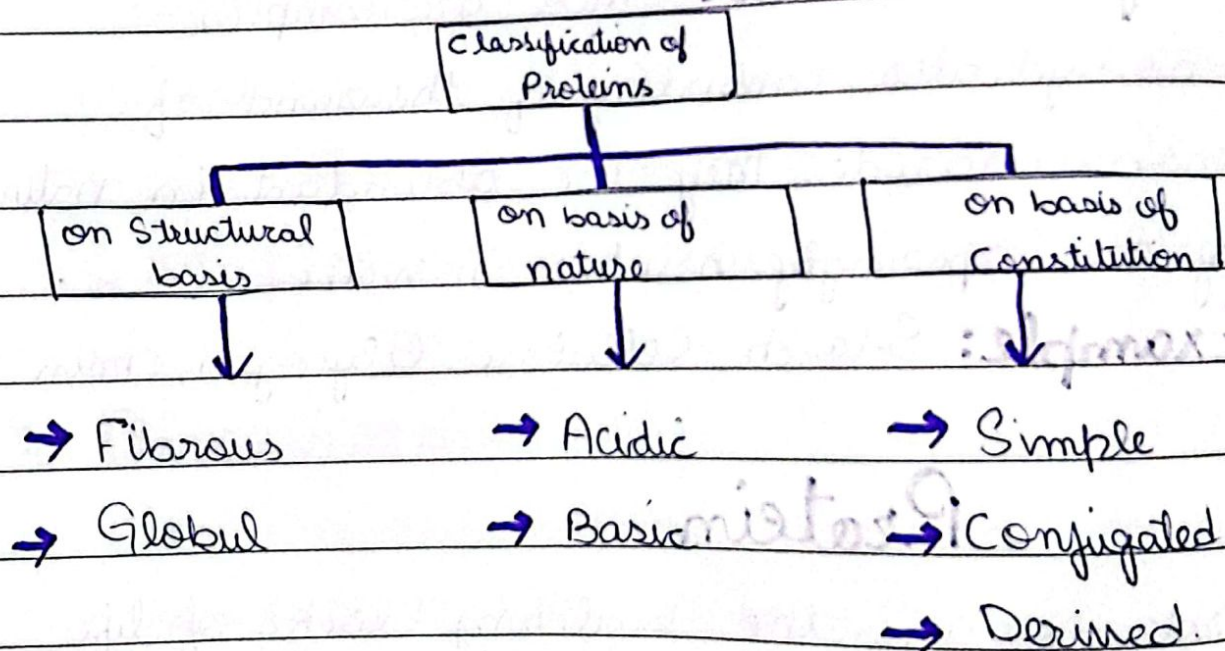 Classification of
Proteins
on Structural
basis
on basis of
nature
on basis of
Constitution
→ Fibrous
→ Acidic
→ Simple
→ Globul
→ Basic
→ Conjugated
→ Derived.